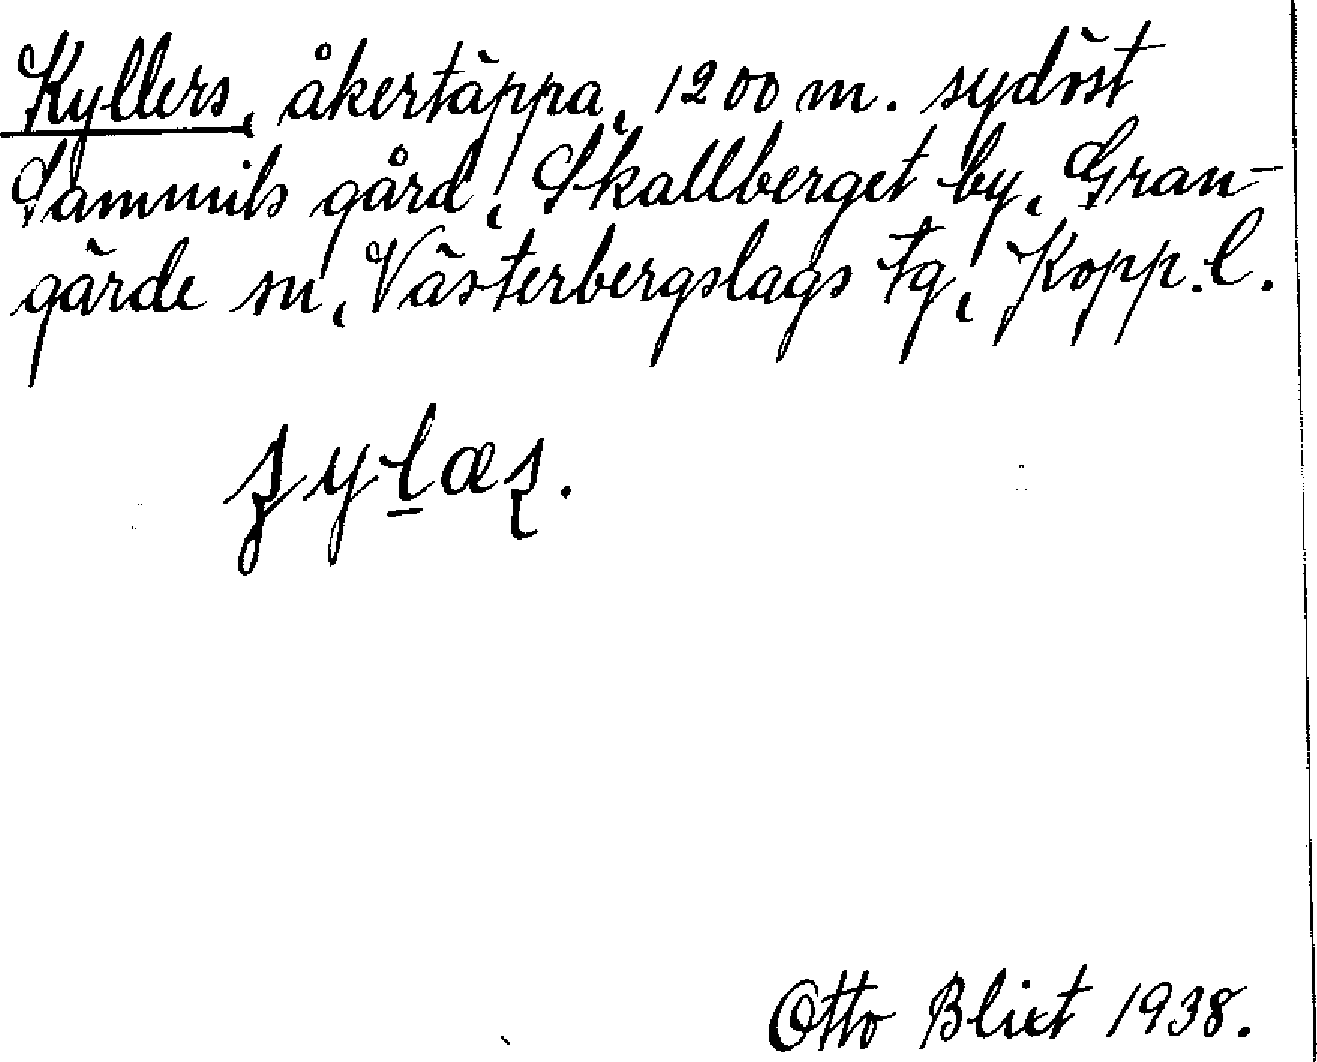 Kyllers, åkertäppa, 1200 m. sydöst
Sammils gård, Skallberget by, Gran-
gärde sn, Västerbergslags fg, Kopp. l.
Otto Blixt 1938.